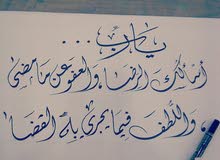 يارب...
أسألك الرضا والعفو عن ما مضى
واللطف فيما يجري به القضا